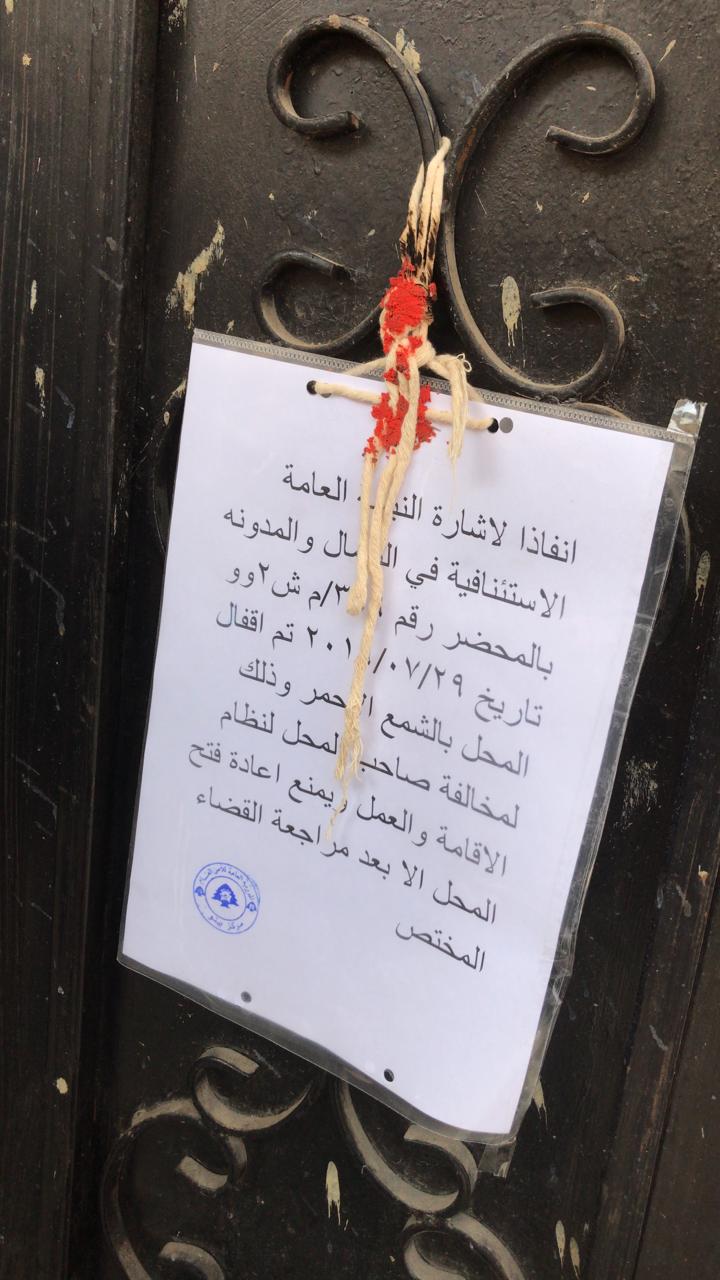 انفاذا لاشارة العامة
الاستئنافية في والمدونه
بالمحضر رقم /م ش٢وو
تاريخ ٠٧/٢٩/ تم اقفال
المحل بالشمع الاحمر وذلك
لمخالفة صاحب المحل لنظام
الاقامة والعمل ويمنع اعادة فتح
المحل الا بعد مراجعة القضاء
المختص
المديرية العامة للأمن العام